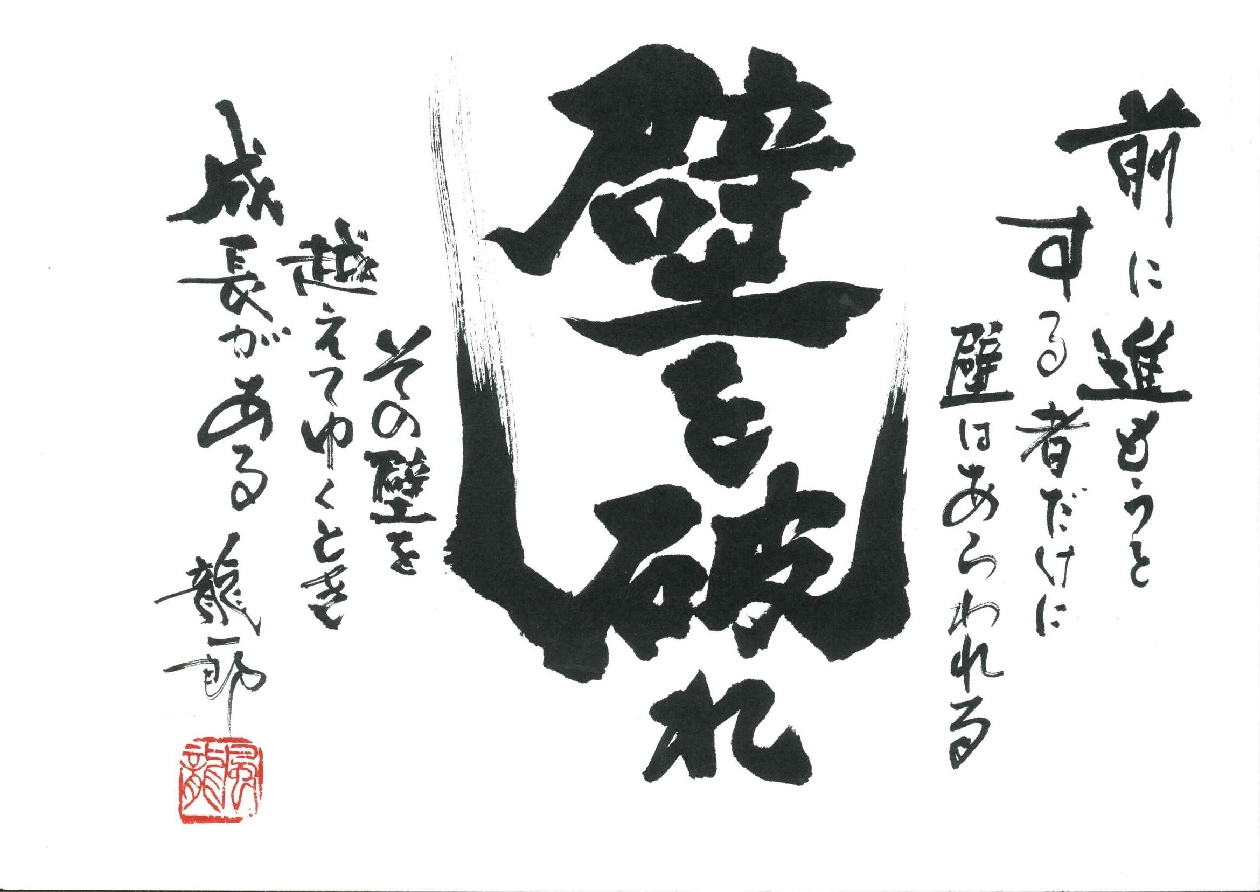 前に進もうと
する者だけに
壁はあらわれる
壁を破れ
その壁を
越えてゆくとき
成長がある
龍一郎